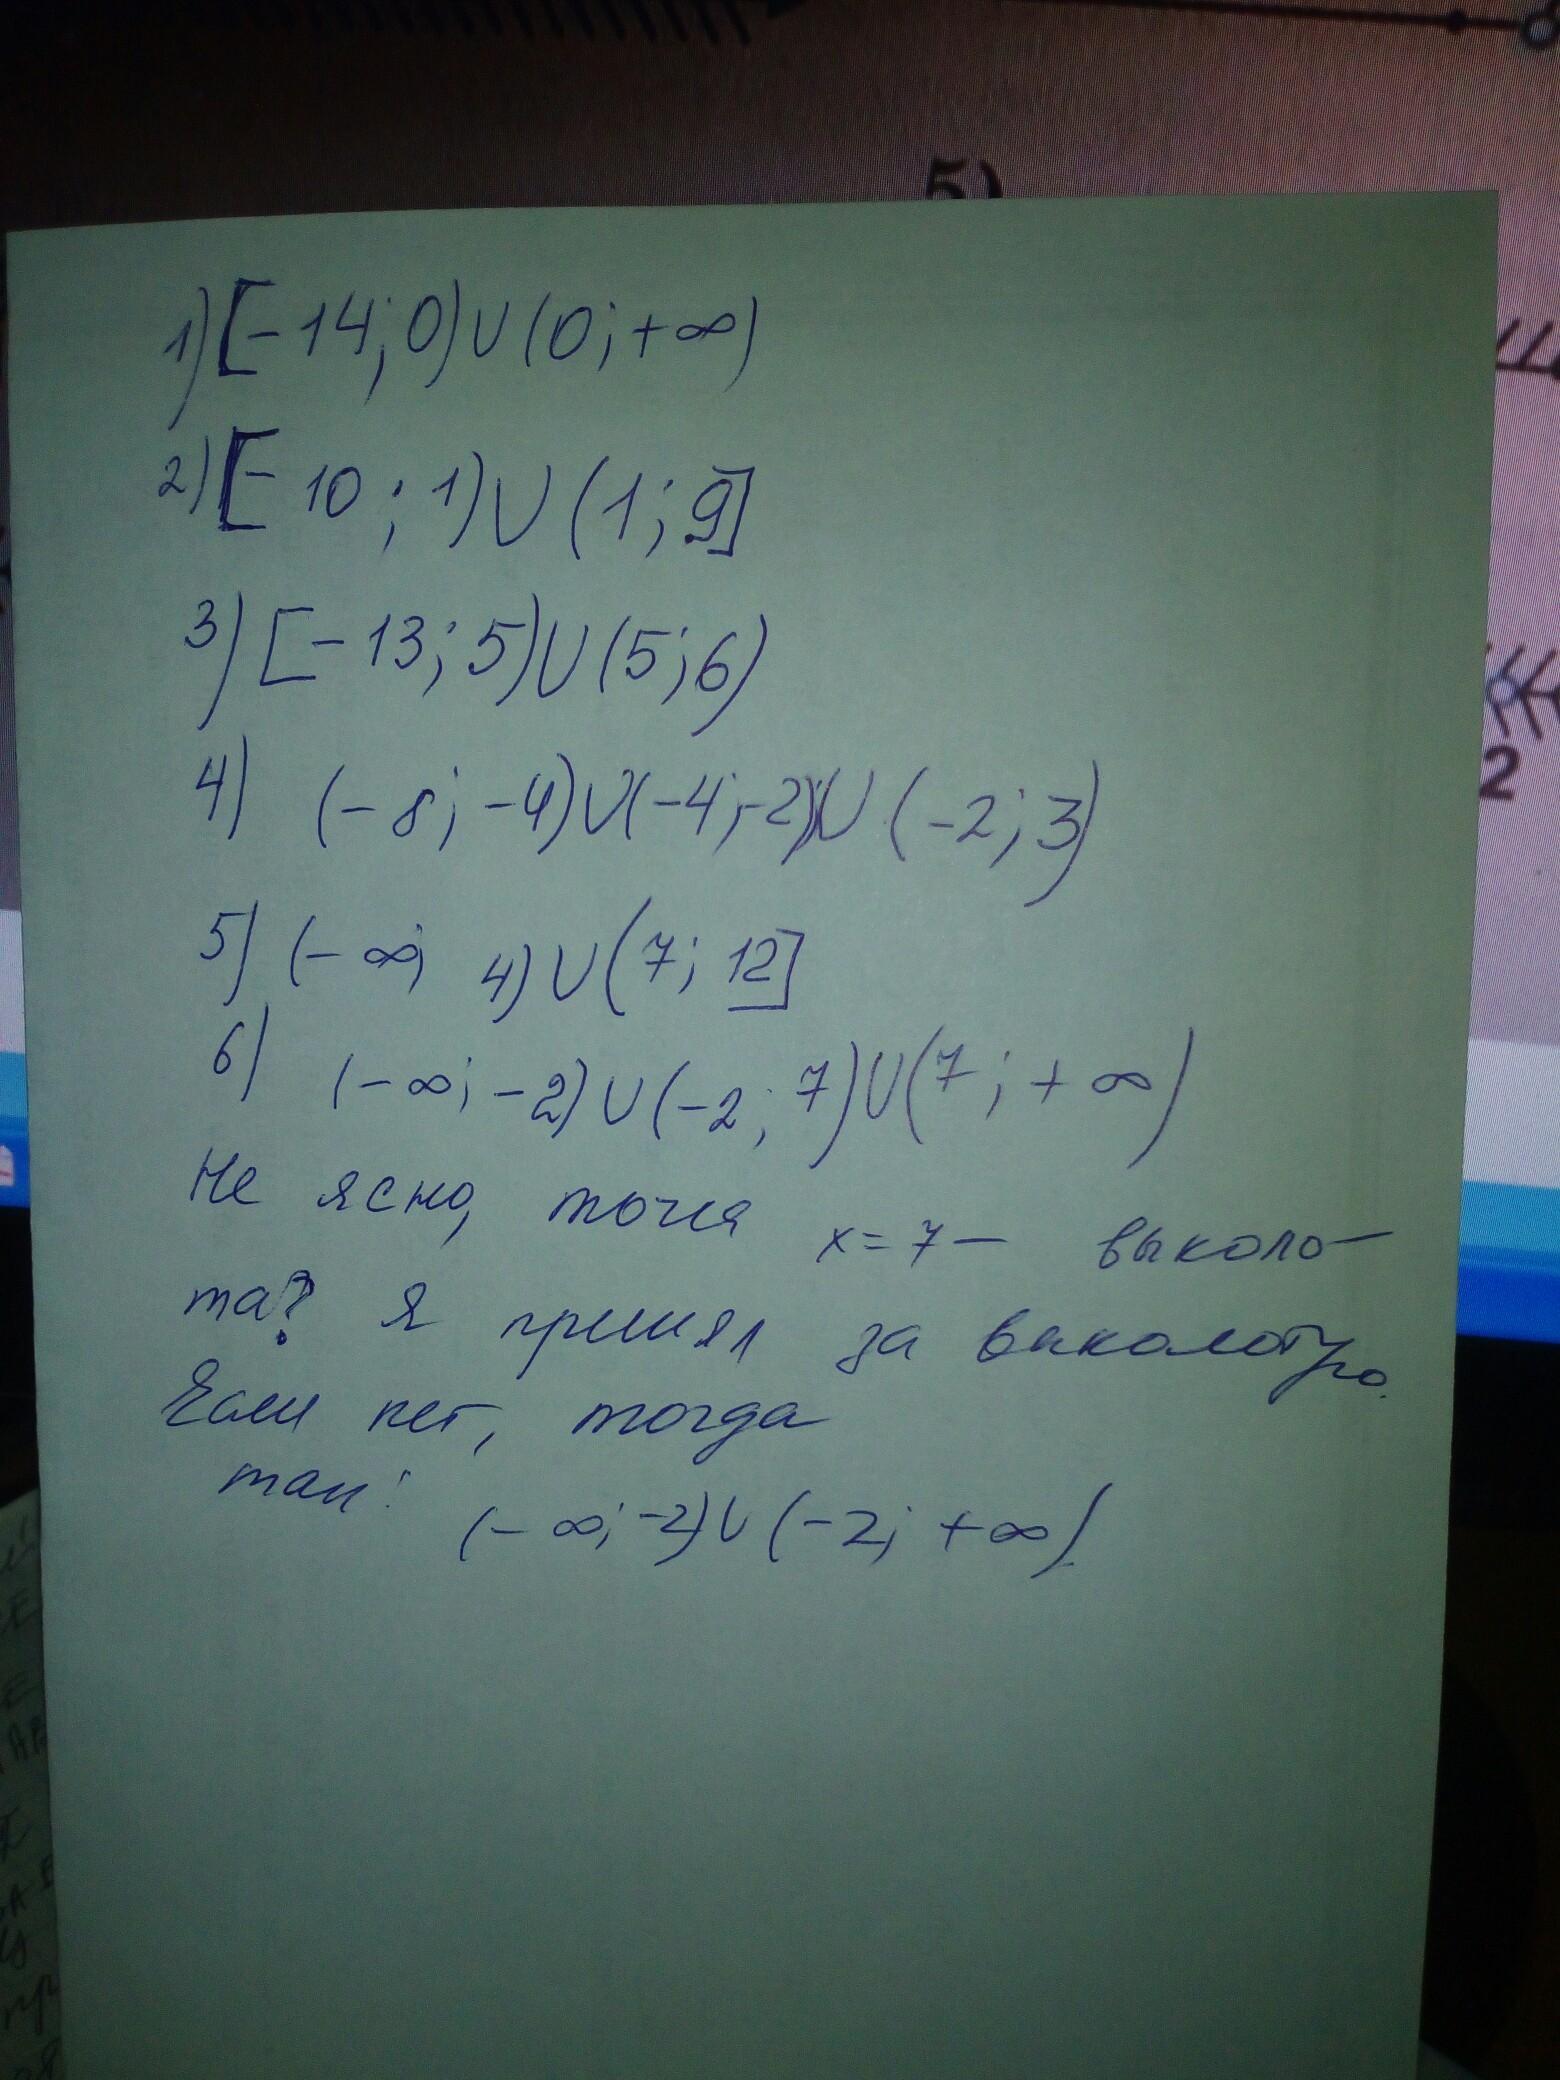 5)
1) [-14; 0) ∪ (0; +∞)
2) [-10; 1) ∪ (1; 9]
3) [-13; 5) ∪ (5; 6)
4) (-8; -4) ∪ (-4; -2) ∪ (-2; 3)
5) (-∞; 4) ∪ (7; 12]
6) (-∞; -2) ∪ (-2; 7) ∪ (7; +∞)
Не ясно, точка x = 7 — выколо-
та? Я принял за выколотую.
Если нет, тогда
так: (-∞; -2) ∪ (-2; +∞)
2